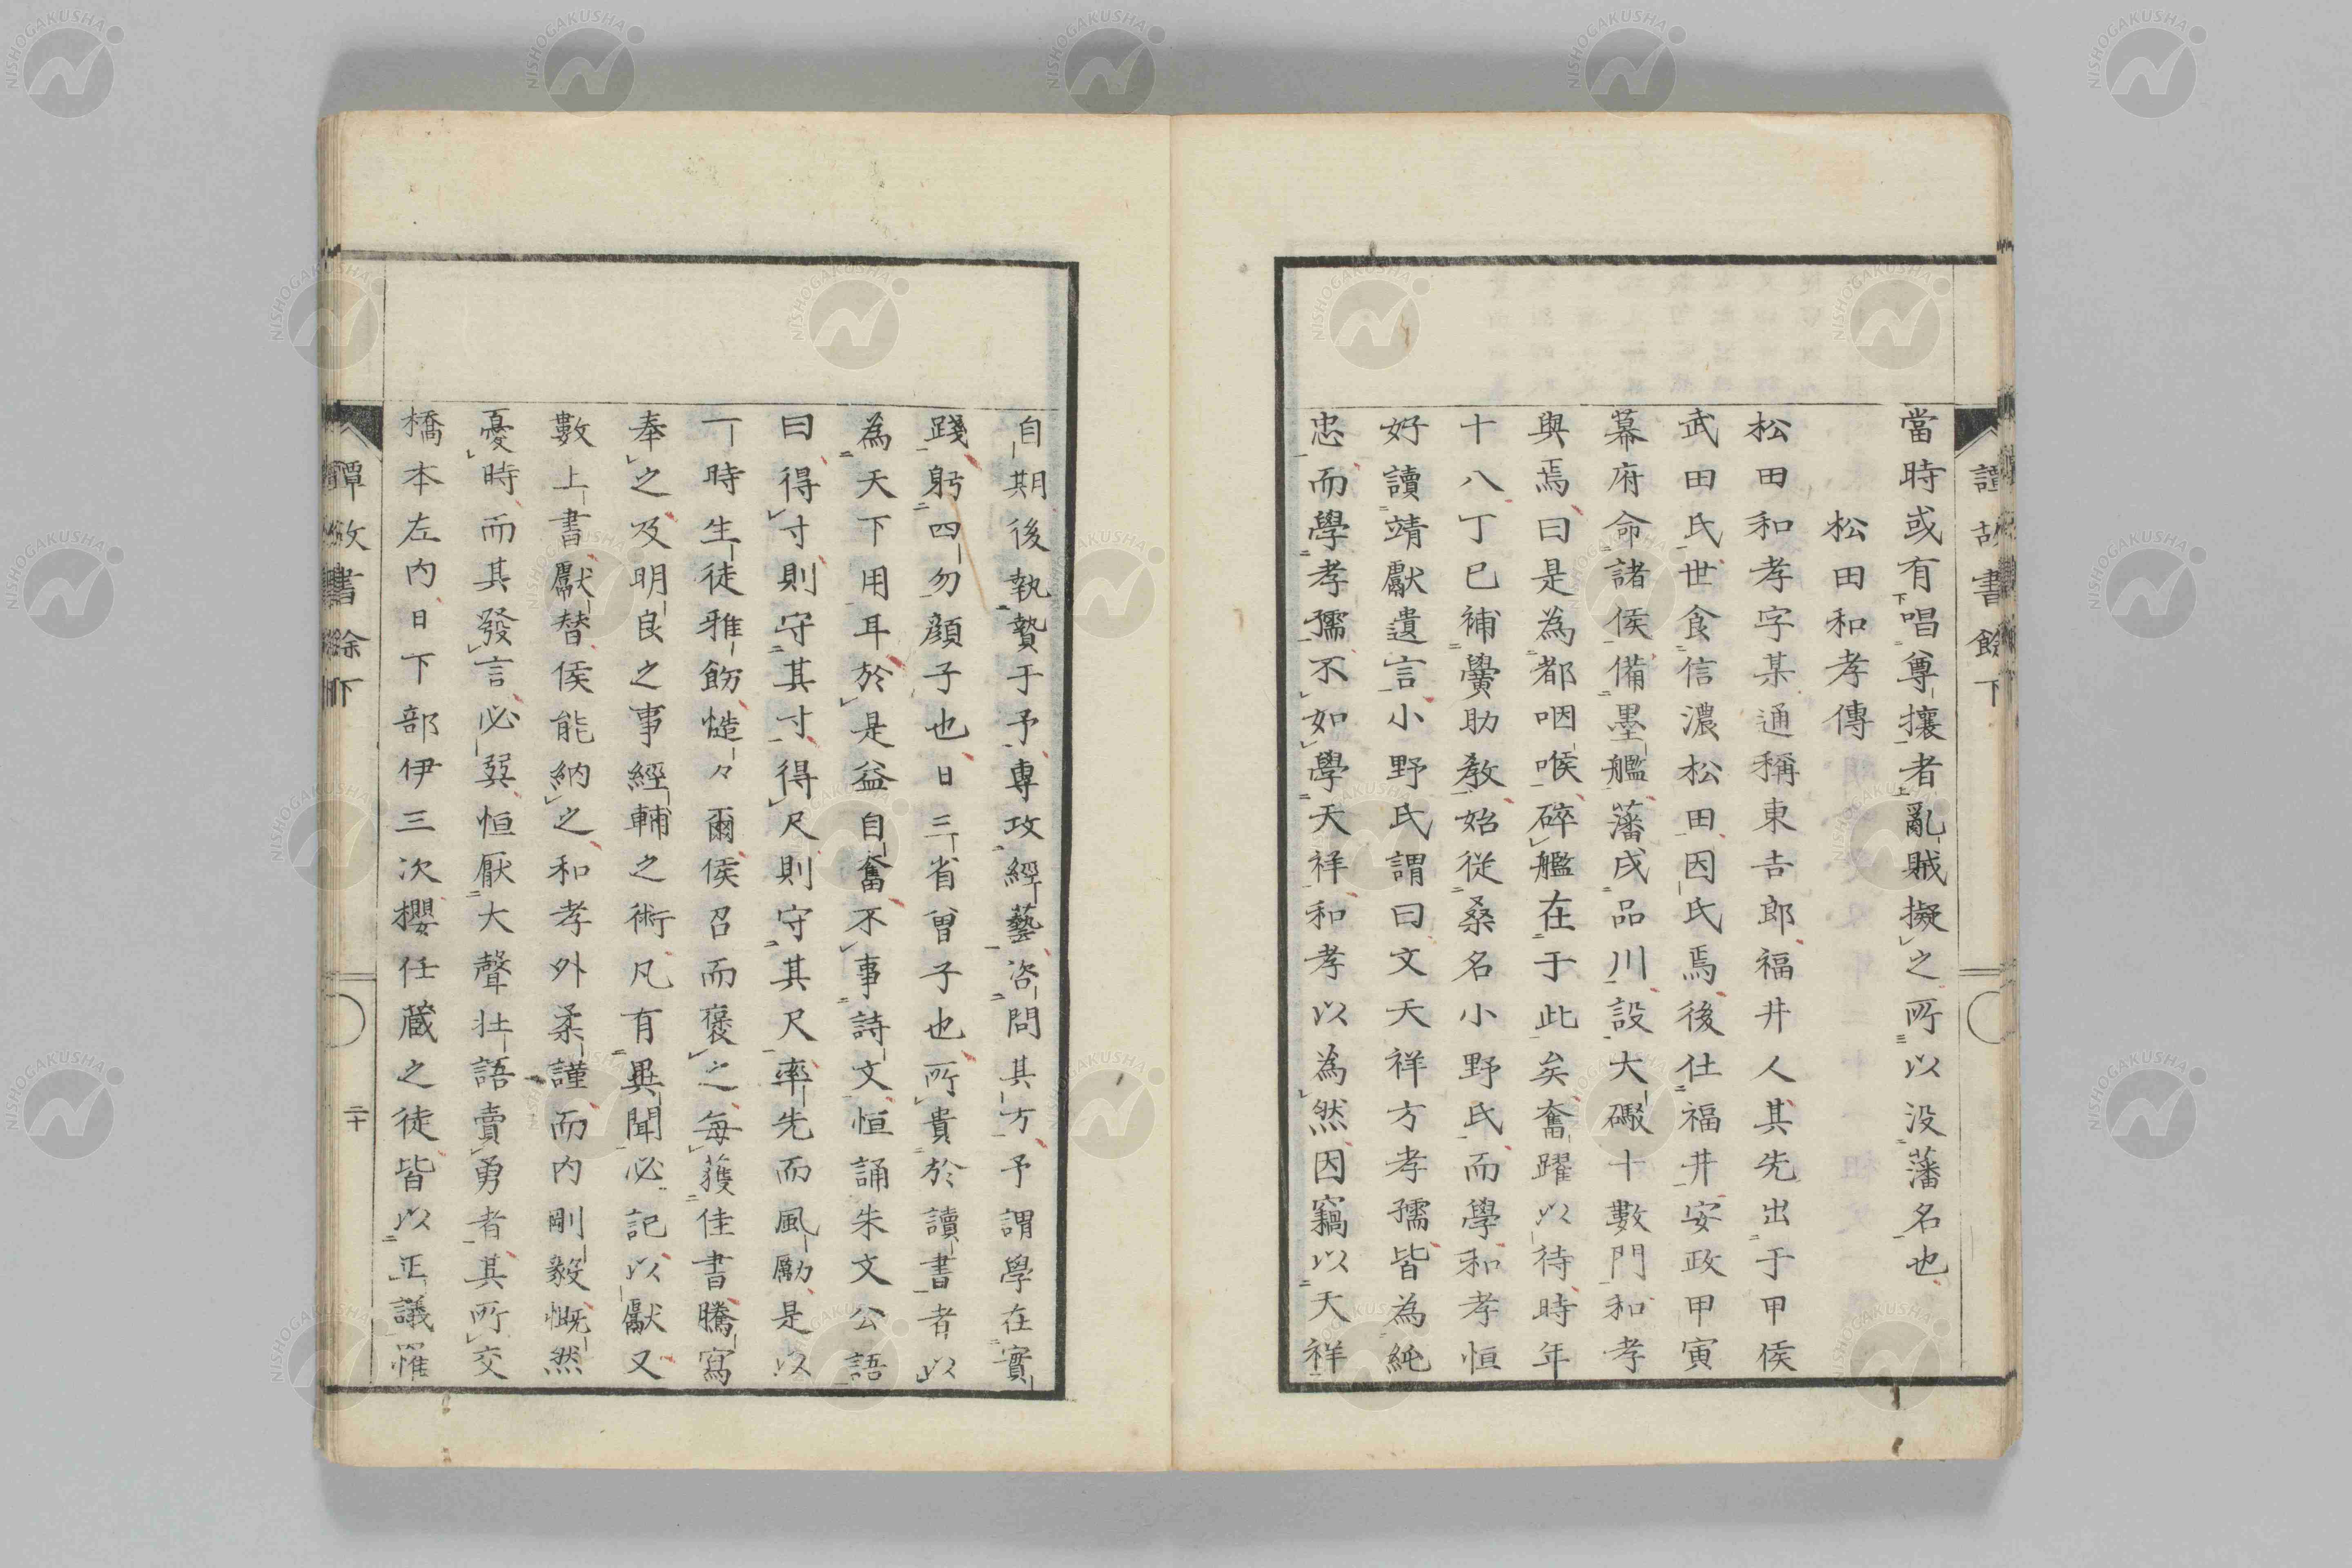 當時或有唱尊攘者亂賊擬之所以没藩名也
松田和孝傳
松田和孝字某通稱東吉郎福井人其先出于甲侯
武田氏世食信濃松田因氏焉後仕福井安政甲寅
幕府命諸侯備墨艦藩戍品川設大礮十數門和孝
與焉曰是為都咽喉碎艦在于此矣奮躍以待時年
十八丁巳補黌助教始従桑名小野氏而學和孝恒
好讀靖獻遺言小野氏謂曰文天祥方孝孺皆為純
忠而學孝孺不如學天祥和孝以為然因竊以天祥
自期後執贄于予專攻經藝咨問其方予謂學在實
踐躬四勿顔子也日三省曽子也所貴於讀書者以
為天下用耳於是益自奮不事詩文恒誦朱文公語
曰得寸則守其寸得尺則守其尺率先而風勵是以
一時生徒雅飭慥々爾侯召而褒之毎獲佳書騰寫
奉之及明良之事經輔之術凡有異聞必記以獻又
數上書獻替侯能納之和孝外柔謹而内剛毅慨然
憂時而其發言必巽恒厭大聲壮語賣勇者其所交
橋本左内日下部伊三次櫻任蔵之徒皆以正議罹
書餘下
二十